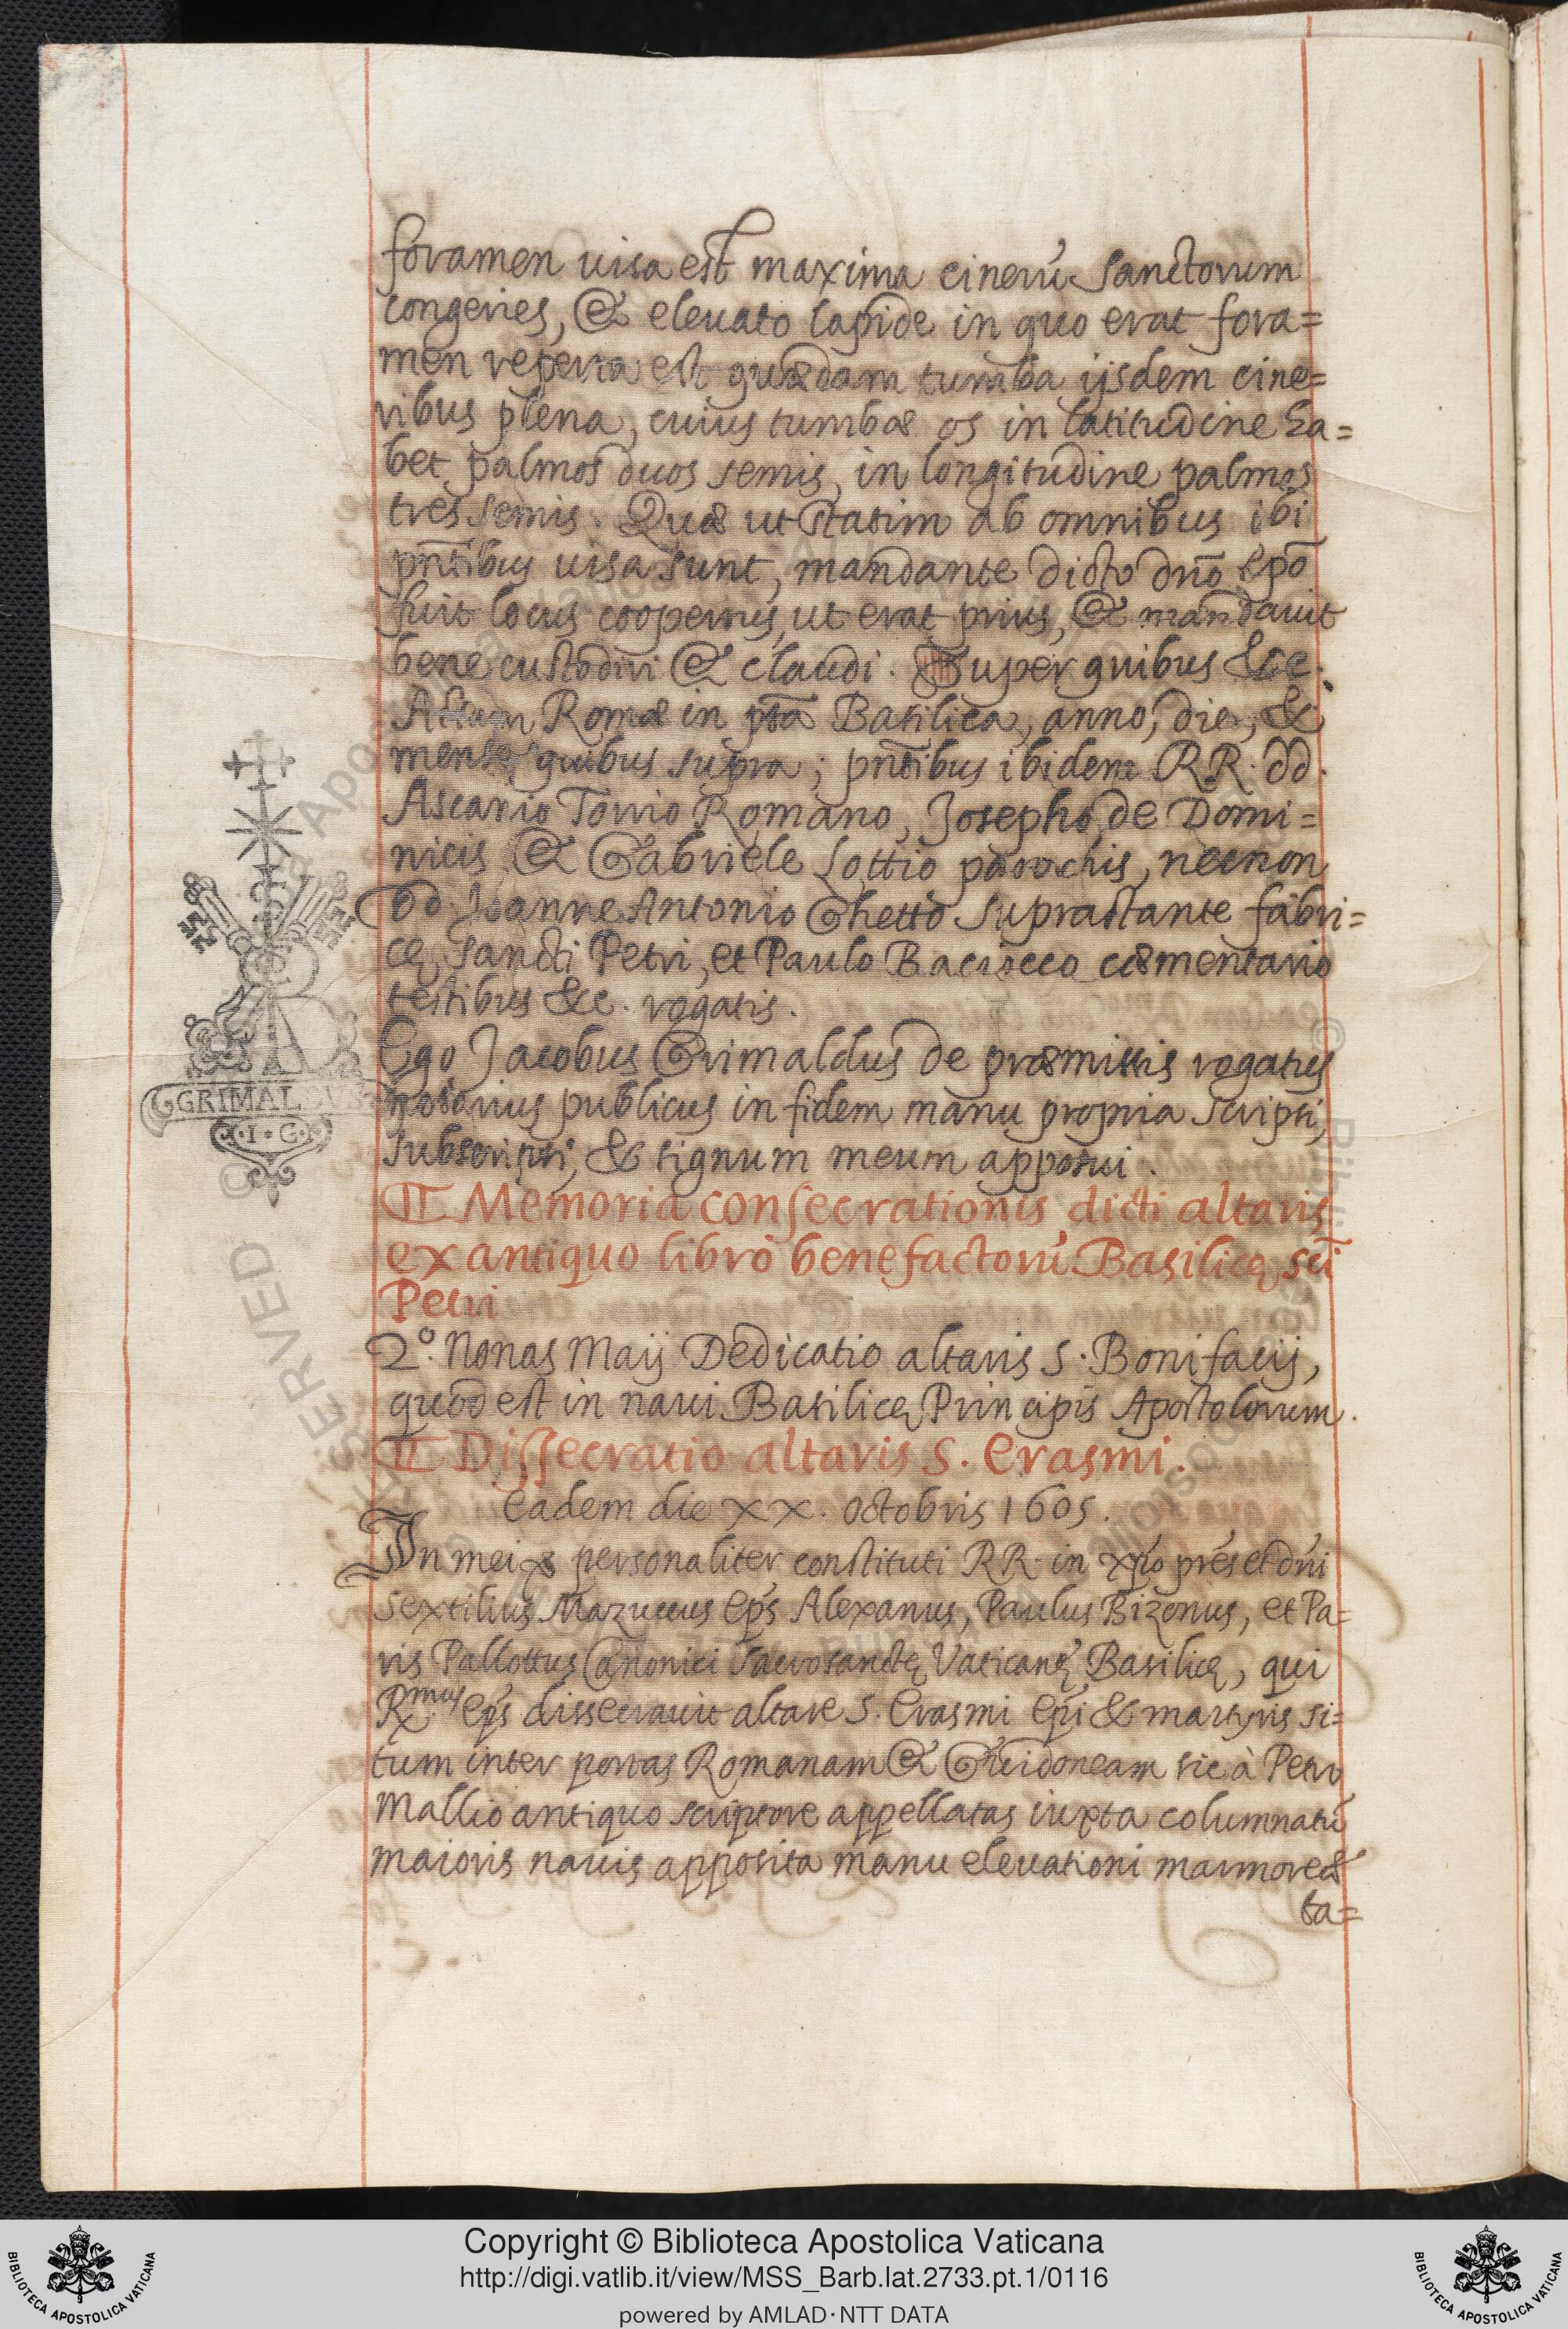 foramen uisa est maxima cinerũ Sanctorum
congeries, & eleuato lapide in quo erat fora=
men reperta est quædam tumba ijsdem cine=
ribus plena, cuius tumbæ os in latitudine ha=
bet palmos duos semis, in longitudine palmos
tres semis. Quæ ut statim ab omnibus ibi
pñtibus uisa sunt, mandante dicto dño epõ
fuit locus coopertus, ut erat prius, & mandauit
bene custodiri & claudi. Super quibus &c.
Actum Romæ in pta Basilica, anno, die, &
mense quibus supra; pñtibus ibidem RR. dd.
Ascanio Torrio Romano, Josepho de Domi=
nicis & Gabriele Lottio parochis, necnon
Dd. Joanne Antonio Ghetto suprastante fabri=
cę sancti Petri, et Paulo Baciocco cæmentario
testibus &c. rogatis.
Ego Jacobus Grimaldus de præmissis rogatus
notarius publicus in fidem manu propria scripsi,
subscripsi, & signum meum apposui.
GRIMALDVS
·I·G·
Memoria consecrationis dicti altaris
ex antiquo libro benefactorũ Basilicę sčti
Petri
2º. Nonas Maij Dedicatio altaris S. Bonifacij,
quod est in naui Basilicę Principis Apostolorum.
Dissecratio altaris S. Erasmi.
Eadem die xx. octobris 1605.
In mei personaliter constituti RR. in xpo pres et dni
Sextilius Mazuccus Eps Alexanus, Paulus Bizonus, et Pa=
ris Pallottus Canonici sacrosanctę Vaticanę Basilicę, qui
Rmus eps dissecrauit altare S. Erasmi epi & martyris si=
tum inter portas Romanam & Guidoneam sic à Petro
Mallio antiquo scriptore appellatas iuxta columnatũ
maioris nauis apposita manu eleuationi marmoreæ
ta=
Copyright © Biblioteca Apostolica Vaticana
http://digi.vatlib.it/view/MSS_Barb.lat.2733.pt.1/0116
powered by AMLAD·NTT DATA
BIBLIOTECA APOSTOLICA VATICANA
BIBLIOTECA APOSTOLICA VATICANA